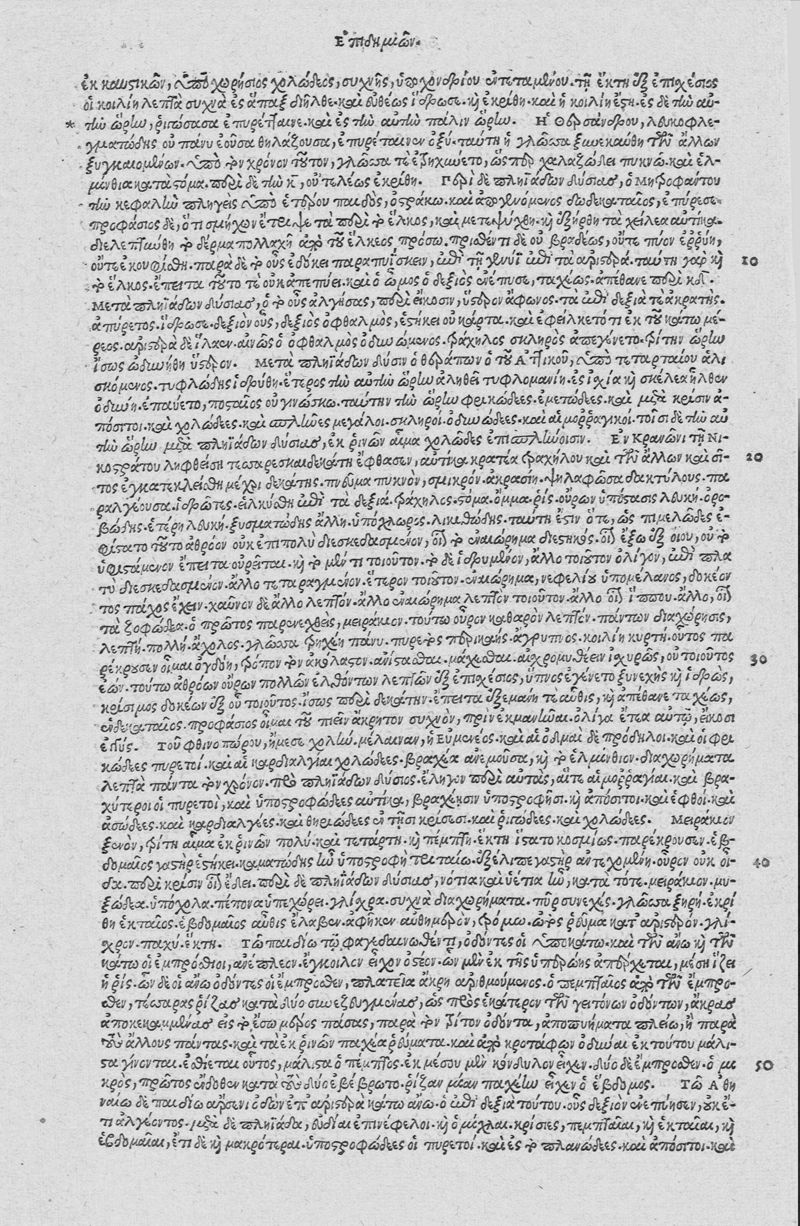 Ἐπιδημιῶν.
ἐκ καυστικῶν, ἀπὸ χωρήσιος χολώδεος, συχνῆς, ὑποχονδρίου ἐντεταμένου. τῇ ἕκτῃ ἐξ ἐπισχέσιος
οἱ κοιλίη λεπτὰ συχνὰ ἐς ἅπαξ διῆλθε. καὶ εὐθέως ἵδρωσε. κỳ ἐκρίθη. καὶ ἡ κοιλίη ἔστη. ἐς δὲ τὴν αὐ-
* τὴν ὥρην, ῥιγώσασα ἐπυρέτηνε. καὶ ἐς τὴν αὐτὴν πάλιν ὥρην. Ἡ Θερσάνδρου, λευκοφλε-
γματώδης οὐ πάνυ ἐοῦσα θηλάζουσα, ἐπυρέταινεν ὀξύ. ταύτῃ ἡ γλῶσσα ξυνεκαύθη τῶν ἄλλων
ξυγκαιομένων. ὑπὸ τὸν χρόνον τοῦτον, γλῶσσα τε ἐτρηχύνετο, ὥσπερ χαλαζώδει πυκνῷ. καὶ ἑλ-
μίνθια κατὰ στόμα. περὶ δὲ τὴν κ, οὐ τελέως ἐκρίθη. Περὶ δὲ πληϊάδων δύσιας, ὁ Μητροφάντου
τὴν κεφαλὴν πληγεὶς ὑπὸ ἑτέρου παιδὸς, ὀστράκῳ. καὶ ἀπογενόμενος δωδεκαταῖος, ἐπύρεσε.
προφάσιος δὲ, ὅτι σμήχων ἔτριψε τὰ περὶ τὸ ἕλκος, καὶ μετεψύχθη. κỳ ἐξήρθη τὰ χείλεα αὐτίκα.
διελεπτύνθη τὸ δέρμα πολλαχῇ ἀπὸ τοῦ ἕλκεος πρόσω. πριοθέντι δὲ οὐ βραδέως, οὔτε πῦον ἐῤῥύη,
οὔτε ἐκουφίσθη. παρὰ δὲ τὸ οὖς ἐδόκει παραπυΐσκειν, ἐπὶ τῇ γένυϊ ἐπὶ τὰ ἀριστερά. ταύτῃ γὰρ κỳ 10
τὸ ἕλκος. ἔπειτα τοῦτό τε οὐκ ἀπεπύει. καὶ ὁ ὦμος ὁ δεξιὸς ἐνέπυσε, ταχέως. ἀπέθανε περὶ κδ.
Μετὰ πληϊάδων δύσιας, ὁ τὸ οὖς ἀλγήσας, περὶ εἴκοσιν, ὕστερον ἄφωνος. τὰ ἐπὶ δεξιά τε ἀκρατής.
ἀπύρετος. ἵδρωσε. δεξιὸν οὖς, δεξιὸς ὀφθαλμὸς, ἑστήκει οὐ κάρτα. καὶ ἐφείλκετό τι ἐκ τοῦ κάτω μέ-
ρεος. ἀριστερὰ δὲ ἴλαεν. αἰνῶς ὁ ὀφθαλμὸς ὀδυνώμενος. τράχηλος σκληρὸς ἀπεγένετο. τρίτην ὥρην
ἴσως ὠδυνήθη ὕστερον. Μετὰ πληϊάδων δύσιν ὁ θεράπων ὁ τοῦ Ἀττικοῦ, ὑπὸ τεταρταίου ἁλι-
σκόμενος. τυφλώδης ἱδρύθη. ἕτερος τὴν αὐτὴν ὥρην ἀληθεῖ τυφλομανίῃ. ἐς ἰσχία κỳ σκέλεα ἦλθεν
ὀδύνη. ἐπαύετο, ποσταῖος οὐ γινώσκω. ταύτην τὴν ὥρην φρικώδεες. ἐμετώδεες. καὶ μετὰ κρίσιν ἀ-
πόσιτοι. καὶ χολώδεες. καὶ σπλῆνες μεγάλοι. σκληροὶ. ὀδυνώδεες. καὶ αἱμοῤῥαγικοί. τοῖσι δὲ τὴν αὐ-
τὴν ὥρην μετὰ πληϊάδων δύσιας, ἐκ ῥινῶν αἷμα χολῶδες ἐπισπλήνοισιν. Ἐν Κρανῶνι τῇ Νι-
κοστράτου ληφθείσῃ τεσσαρεσκαιδεκάτῃ ἔφθασεν, αὐτίκα κρατέα τραχήλου καὶ τῶν ἄλλων καὶ σῖ- 20
τος ἐγκατεκλείσθη μέχρι δεκάτης. πνεῦμα πυκνὸν, σμικρόν. ἀκρασίη. ψηλαφῶσα δακτύλους. πα-
ραλγέουσα. ἱδρῶτες. εἱλκύσθη ἐπὶ τὰ δεξιά. τράχηλος. στόμα. ὄμμα. ῥίς. οὔρων ὑπόστασις λευκὴ. ὀρο-
βώδης. ἑτέρη λευκὴ. ξυσματώδης ἄλλη. ὑπόχλωρος. λεκιθώδης. ταύτῃ ἔστιν ὅτε, ὡς πιμελῶδες ἐ-
φίστατο τοῦτο ἀθρόον οὐκ ἐπιπολὺ διεσκεδασμένον, οἷον τὸ ἐναιώρημα διεστηκὸς. οἷον ἔξω ἐξ οἵου, οὐ τὸ
ὑφιστάμενον ἔπειτα οὐρεῖται. κỳ τὸ μέν τι τοιοῦτον. τὸ δὲ ἱδρυμένον, ἄλλο τοιοῦτον ὀλίγον, ἐπὶ πλα-
τὺ διεσκεδασμένον. ἄλλο τεταραγμένον. ἕτερον τοιοῦτον. ἐναιώρημα, νεφελίου ὑπομέλανος, δοκέον-
τος πάχος ἔχειν. χαῦνον δὲ ἄλλο λεπτόν. ἄλλο ἐναιώρημα λεπτὸν τοιοῦτον. ἄλλο οἷον ἵππου. ἄλλο, οἷον
τὰ ζοφώδεα. ὁ πρῶτος παρενεχθεὶς, μειράκιον. τούτῳ οὖρον καθαρὸν λεπτόν. πάντων διαχώρησις,
λεπτὴ. πολλὴ. ἄχολος. γλῶσσα τρηχείη πάνυ. πυρετὸς περικαὴς. ἄγρυπνος. κοιλίη κυρτή. οὗτος πα-
ρέκρουσεν οἶμαι ὀγδόῃ, τρόπον τὸν ἀκόλαστον. ἀνίστασθαι. μάχεσθαι. αἰσχρομυθέειν ἰσχυρῶς, οὐ τοιοῦτος 30
ἐών. τούτῳ ἀθρόων οὔρων πολλῶν ἐλθόντων λεπτῶν ἐξ ἐπισχέσιος, ὕπνος ἐγένετο ξυνεχὴς κỳ ἱδρὼς,
κρίσιμος δοκέων ἐξ οὐ τοιοῦτος. ἴσως περὶ δεκάτην. ἔπειτα ἐξεμάνη τε αὖθις, κỳ ἀπέθανε ταχέως,
ἑνδεκαταῖος. προφάσιος οἶμαι τοῦ πιεῖν ἄκρητον συχνὸν, πρὶν ἐκμανῆναι. ὀλίγα ἔτεα αὐτῷ, εἴκοσι
ἐγγύς. Τοῦ φθινοπώρου, ἤμεσε χολὴν. μέλαιναν, ἡ Εὐμενέος. καὶ αἱ ὀδμαὶ δὲ πρόδηλοι. καὶ οἱ φρι-
κώδεες πυρετοί. καὶ αἱ καρδιαλγίαι χολώδεες. βραχέα ἀνεμοῦσα, κỳ τὸ ἑλμίνθιον. διαχωρήματα
λεπτὰ πάντα τὸν χρόνον. πρὸ πληϊάδων δύσιος. ἔληγον περὶ αὐτὰς, αἵ τε αἱμοῤῥαγίαι. καὶ βρα-
χύτεροι οἱ πυρετοὶ, καὶ ὑποστροφώδεες αὐτίκα, βραχείῃσιν ὑποστροφῇσι. κỳ ἀπόσιτοι. καὶ ἑφθοί. καὶ
ἀσώδεες. καὶ καρδιαλγέες. καὶ θηριώδεες ἐν τῇσι κρίσεσι. καὶ ῥιγώδεες. καὶ χολώδεες. Μειράκιον
ξενὸν, τρίτῃ αἷμα ἐκ ῥινῶν πολύ. καὶ τετάρτῃ. κỳ πέμπτῃ. ἕκτῃ ἵστατο κοσμίως. παρέκρουσεν. ἑβ-
δομαῖος γαστὴρ ἑστήκει. καματώδης ἦν ὑποστροφὴ τριταίῳ. ἐξέλιπε γαστὴρ ἀντεχομένη. οὖρον οὐκ οἶ- 40
δα. περὶ κρίσιν οἷον ἔδει. περὶ δὲ πληϊάδων δύσιας, νότια καὶ ὑέτια ἦν, κατὰ τότε. μειράκιον. μυ-
ξώδεα. ὑπόχολα. πέπονα ὑπεχώρει. γλίσχρα. συχνὰ διαχωρήματα. πῦρ συνεχὲς. γλῶσσα ξηρή. ἐκρί-
θη ἑκταῖος. ἑβδομαῖος αὖθις ἔλαβεν. ἀφῆκεν αὐθημερὸν, τρόμῳ. ὠτὸς ῥεῦμα κατ' ἀριστερόν. γλί-
σχρον. παχύ. ἕκτῃ. Τῷ παιδίῳ τῷ φαγεδαινωθέντι, ὀδόντες οἱ ὑποκάτω. καὶ τῶν ἄνω κỳ τῶν
κάτω οἱ ἔμπροσθεν, ἀνέπλεον. ἔγκοιλον εἶχον ὀστέον. ὧν μὲν ἐκ τῆς ὑπερῴης ἀπέρχεται, μέση ἵζει
ἡ ῥίς. ὧν δὲ οἱ ἄνω ὀδόντες οἱ ἔμπροσθεν, πλατεῖα ἄκρη ἀριθμούμενος. ὁ πεμπταῖος ἀπὸ τῶν ἔμπρο-
σθεν, τέσσαρας ῥίζας κατὰ δύο συνεζευγμένας, ὡς πρὸς ἑκάτερον τῶν γειτόνων ὀδόντων, ἄκρας
ἀποκεκαμμένας εἰς τὸ ἔσω μέρος πάσας, παρὰ τὸν τρίτον ὀδόντα, ἀποπυήματα πλείω, ἢ παρὰ
τοὺς ἄλλους πάντας. καὶ τὰ ἐκ ῥινῶν παχέα ῥεύματα. καὶ ἀπὸ κροτάφων ὀδύναι ἐκ τούτου μάλι-
στα γίνονται. ἐσθίεται οὗτος, μάλιστα ὁ πέμπτος. ἐκ μέσου μὲν κόνδυλον εἶχεν. δύο δὲ ἔμπροσθεν. ὁ μι- 50
κρὸς, πρῶτος ἔνδοθεν κατὰ τοὺς δύο ἐβέβρωτο. ῥίζαν μίαν παχείην εἶχεν ὁ ἕβδομος. Τῷ Ἀθη-
ναίῳ δὲ παιδίῳ ἄρσενι ὀδὼν ἐπ' ἀριστερὰ κάτω ἄνω. ὁ ἐπὶ δεξιὰ τούτου. οὖς δεξιὸν ἐνεπύησεν, οὐκ ἔ-
τι ἀλγέοντος. μετὰ δὲ πληϊάδα, εὔδιαι ἐπινέφελοι. κỳ ὁμίχλαι. κρίσιες, πεμπταῖαι, κỳ ἑκταῖαι, κỳ
ἑβδομαῖαι, ἔτι δὲ κỳ μακρότεραι. ὑποστροφώδεες οἱ πυρετοί. καὶ ἐς τὸ πλανώδεες. καὶ ἀπόσιτοι. καὶ